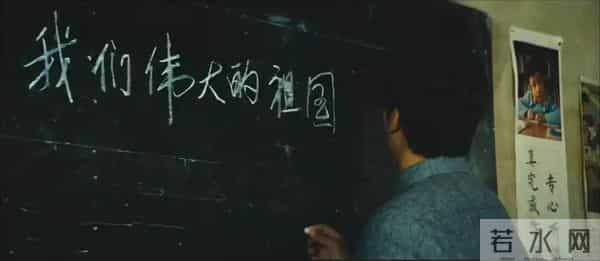 我们伟大的祖国
专心
真完成
若水网